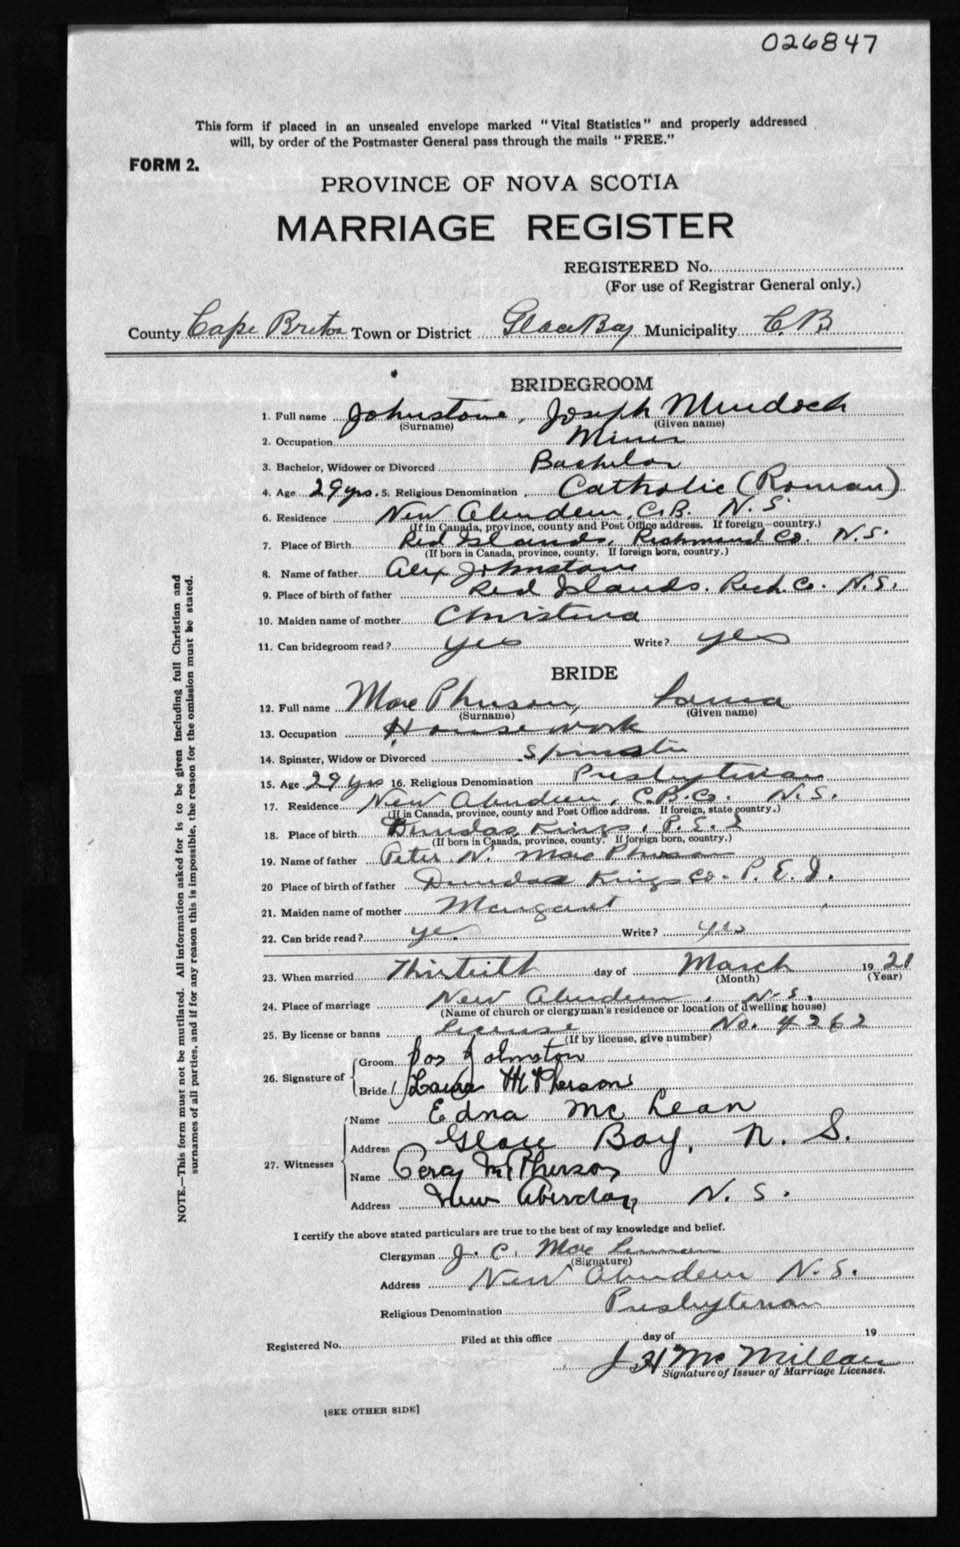 026847
This form if placed in an unsealed envelope marked "Vital Statistics" and properly addressed
will, by order of the Postmaster General pass through the mails "FREE."
FORM 2.
PROVINCE OF NOVA SCOTIA
MARRIAGE REGISTER
REGISTERED No.
(For use of Registrar General only.)
County Cape Breton Town or District Glace Bay Municipality C.B
BRIDEGROOM
1. Full name Johnstone, Joseph Murdoch
(Surname) (Given name)
2. Occupation Miner
3. Bachelor, Widower or Divorced Bachelor
4. Age 29 yrs. 5. Religious Denomination Catholic (Roman)
6. Residence New Aberdeen, C.B. N.S.
(If in Canada, province, county and Post Office address. If foreign—country.)
7. Place of Birth Red Islands, Richmond Co. N.S.
(If born in Canada, province, county. If foreign born, country.)
8. Name of father Alex Johnstone
9. Place of birth of father Red Islands. Rich. Co. N.S.
10. Maiden name of mother Christena
11. Can bridegroom read? yes Write? yes
BRIDE
12. Full name MacPherson, Louisa
(Surname) (Given name)
13. Occupation Housework
14. Spinster, Widow or Divorced Spinster
15. Age 29 yrs 16. Religious Denomination Presbyterian
17. Residence New Aberdeen, C.B.Co. N.S.
(If in Canada, province, county and Post Office address. If foreign, state country.)
18. Place of birth Dundas Kings, P.E.I
(If born in Canada, province, county. If foreign born, country.)
19. Name of father Peter N. MacPherson
20 Place of birth of father Dundas Kings Co. P.E.I.
21. Maiden name of mother Margaret
22. Can bride read? yes Write? yes
23. When married Thirtieth day of March 1921
(Month) (Year)
24. Place of marriage New Aberdeen, N.S.
(Name of church or clergyman's residence or location of dwelling house)
25. By license or banns License No. 4262
(If by license, give number)
26. Signature of
Groom Jos Johnston
Bride Louisa McPherson
27. Witnesses
Name Edna McLean
Address Glace Bay, N. S.
Name Percy McPherson
Address New Aberdeen N. S.
I certify the above stated particulars are true to the best of my knowledge and belief.
Clergyman J. C. Mac
(Signature)
Address New Aberdeen N.S.
Religious Denomination Presbyterian
Registered No. Filed at this office day of 19
J H McMillan
Signature of Issuer of Marriage Licenses.
[SEE OTHER SIDE]
NOTE.—This form must not be mutilated. All information asked for is to be given including full Christian and
surnames of all parties, and if for any reason this is impossible, the reason for the omission must be stated.